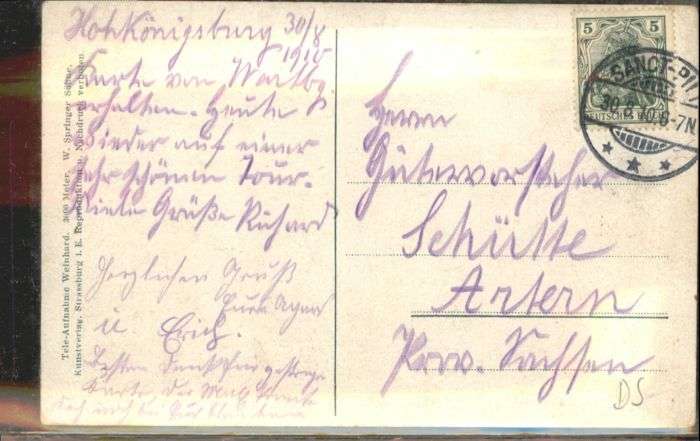 Hohkönigsburg 30/8
1910
Karte von Wartbg
erhalten. Heute
wieder auf einer
sehr schönen Tour.
Viele Grüße Richard
Herzlichen Gruß
Eure Agnes
u. Erich.
Besten Dank für
Karte, der
Tele-Aufnahme Weinhard. 3000 Meter. W. Springer Söhne,
Kunstverlag, Strassburg i. E. Reproduktion u. Nachdruck verboten
5 5
DEUTSCHES REICH
SANCT-PI
30.8.10.6-7N
Herrn
Gütervorsteher
Schütte
Artern
Prov. Sachsen
DS